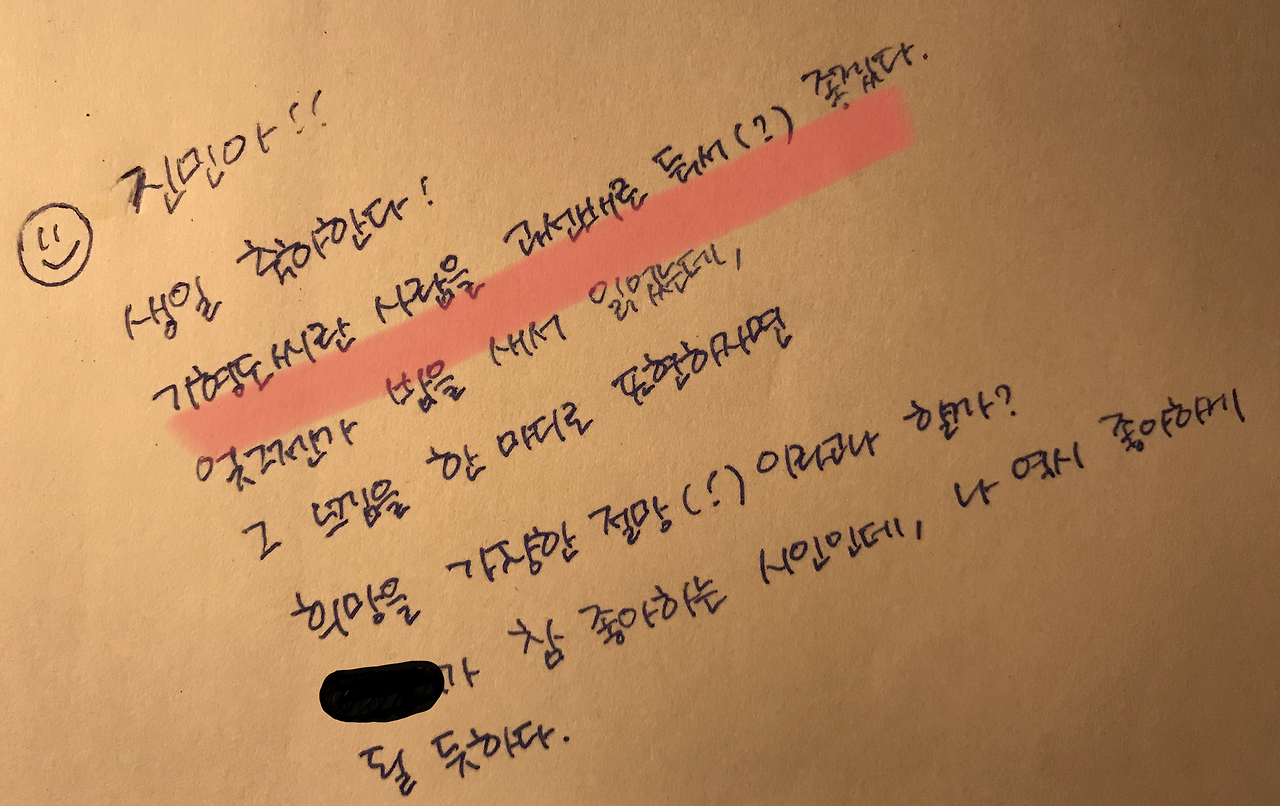 진민아!!
생일 축하한다!
기형도시란 사람을 과선배로 둬서(?) 좋겠다.
엊그젠가 밤을 새서 읽었는데,
그 느낌을 한 마디로 표현하자면
희망을 가장한 절망(!)이라고나 할까?
가 참 좋아하는 시인인데, 나 역시 좋아하게
될 듯하다.